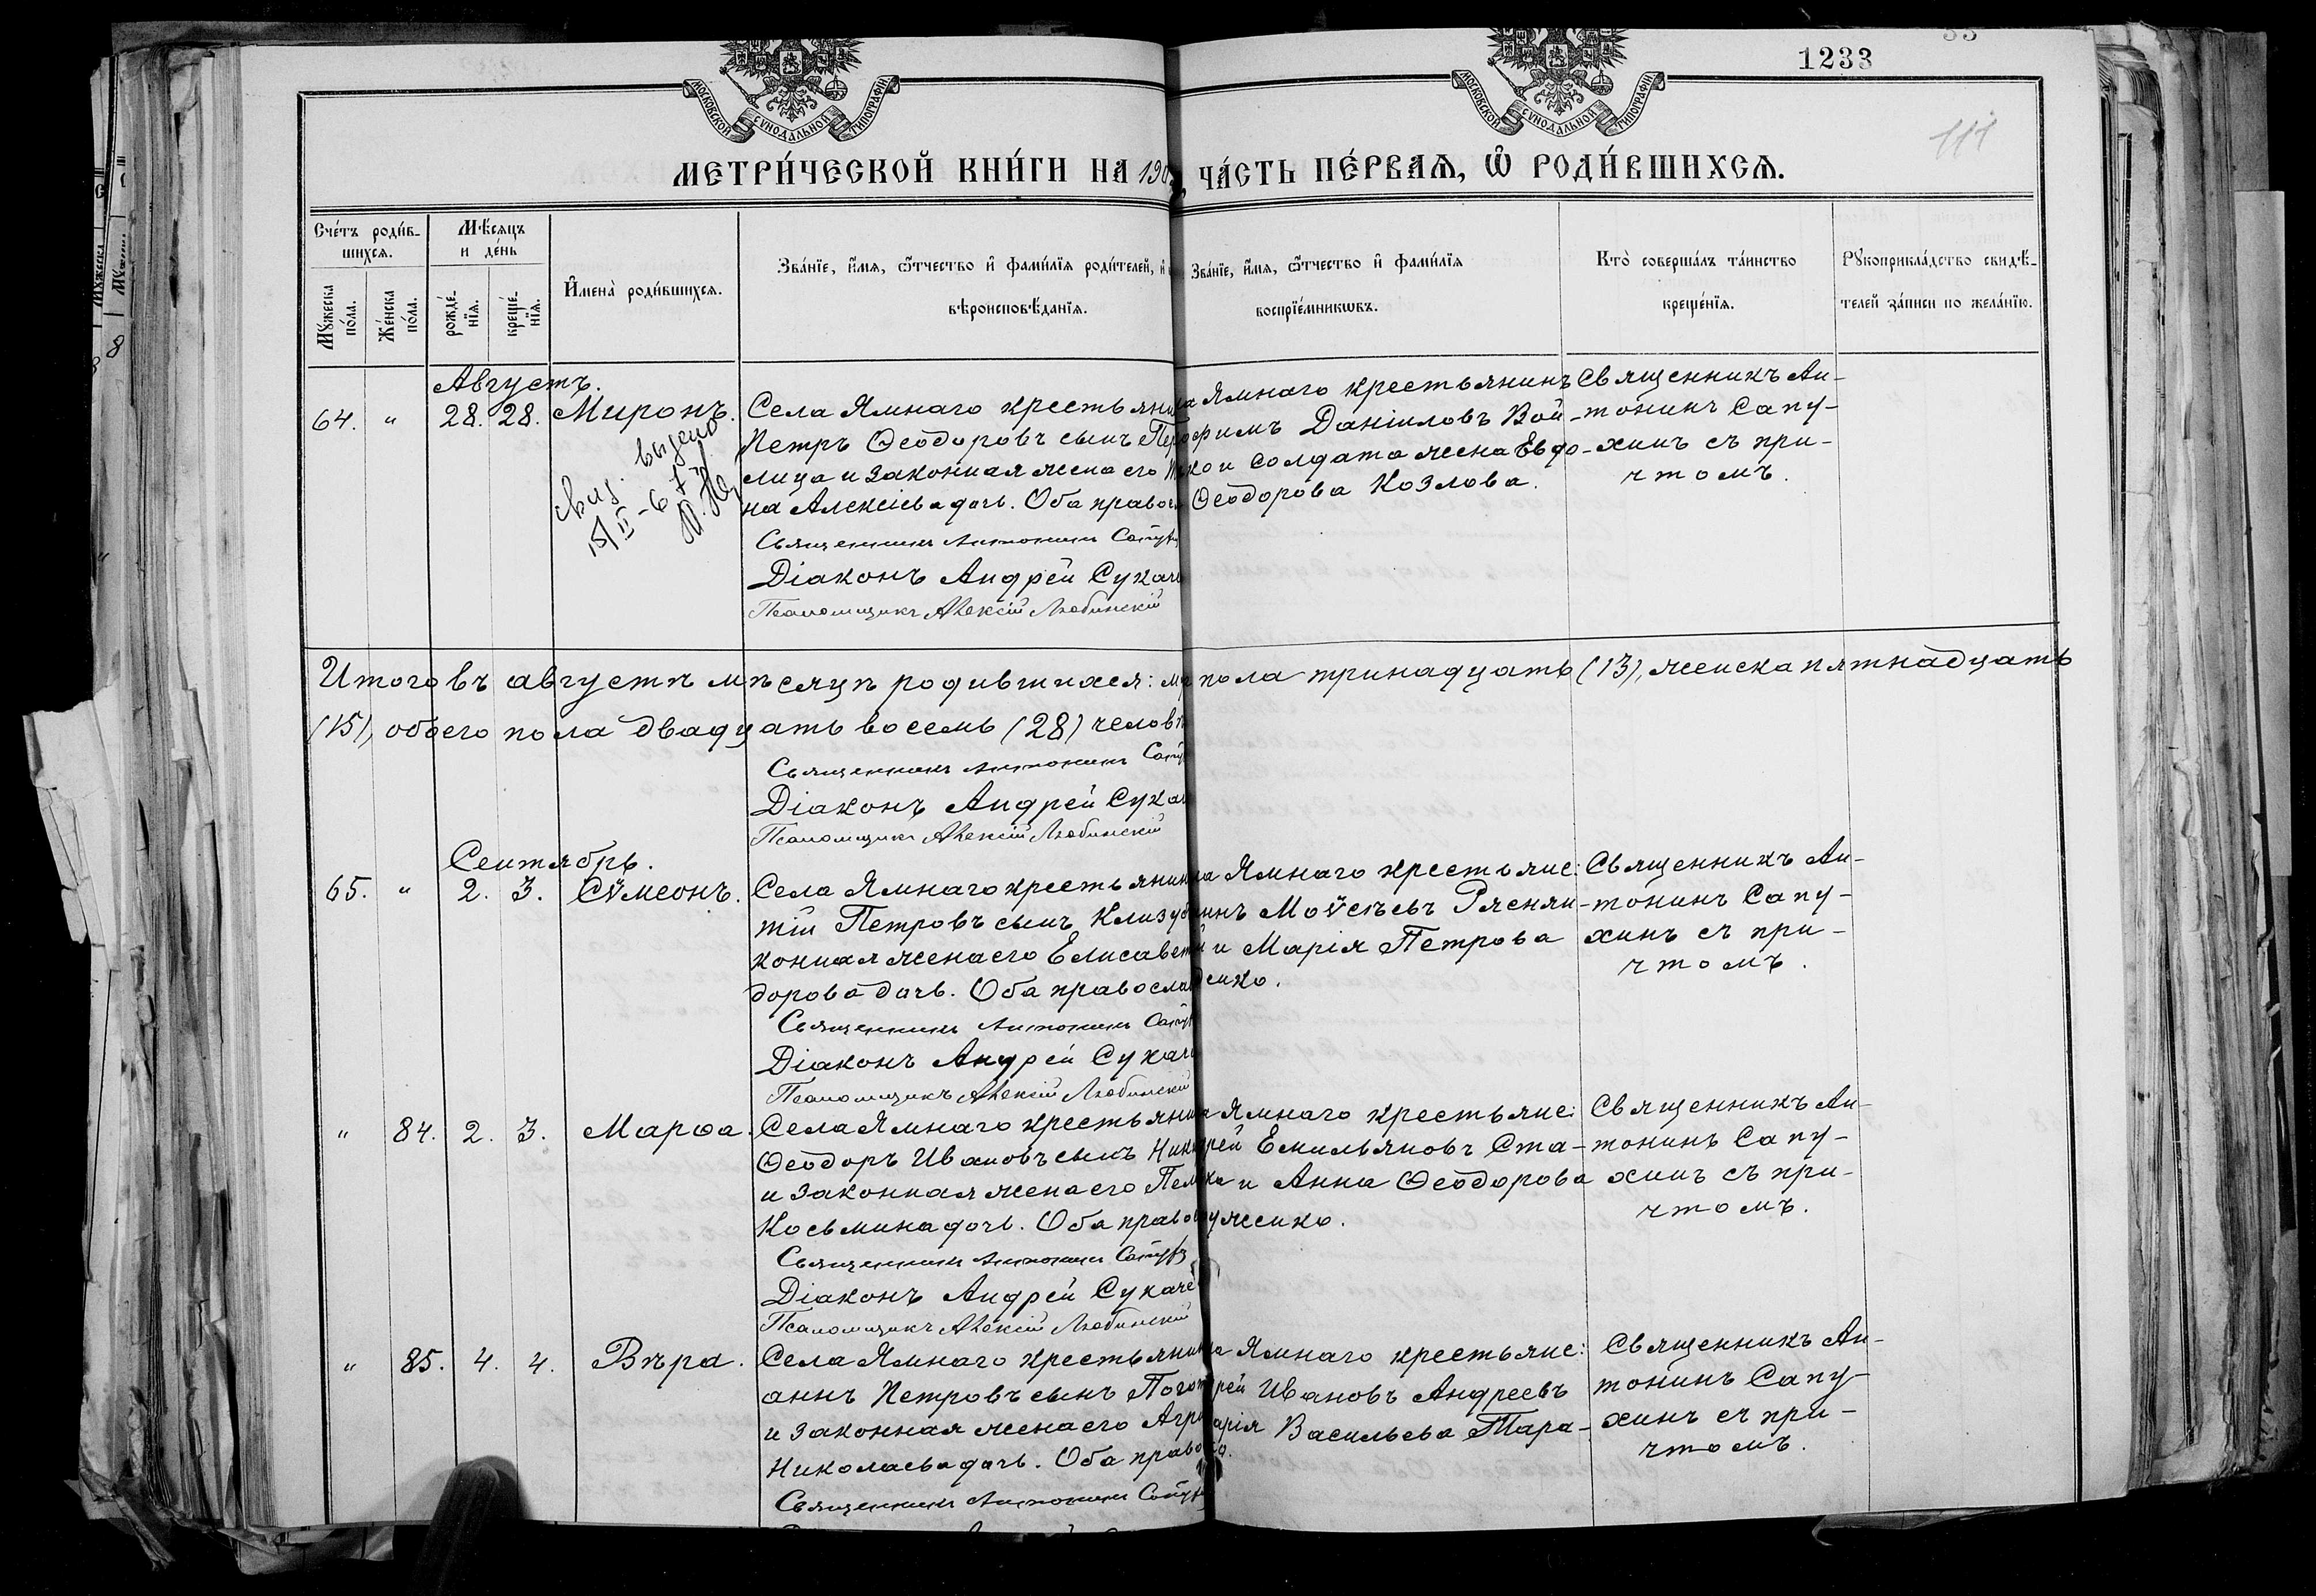 1233
111
МОСКОВСКОЙ СѴНОДАЛЬНОЙ ТИПОГРАФІИ
МОСКОВСКОЙ СѴНОДАЛЬНОЙ ТИПОГРАФІИ
МЕТРИ́ЧЕСКОЙ КНИ́ГИ НА 190
ЧА́СТЬ ПЕ́РВАѦ, Ѡ РОДИ́ВШИХСѦ.
Сче́тъ роди́в-
шихсѧ.
Мꙋ́жеска по́ла.
Же́нска по́ла.
Мѣ́сѧцъ
и де́нь
рожде́-нїѧ.
креще́-нїѧ.
И҆мена̀ роди́вшихсѧ.
Зва́нїе, и҆́мѧ, ѻ҆́тчество и҆ фами́лїѧ роди́телей, и҆
вѣроисповѣ́данїѧ.
Зва́нїе, и҆́мѧ, ѻ҆́тчество и҆ фами́лїѧ
воспрїе́мникѡвъ.
Кто̀ соверша́лъ та́инство
креще́нїѧ.
Рꙋкоприкла́дство свидѣ́-
телей за́писи по жела́нїю.
Августъ.
64. " 28. 28. Миронъ.
Села Ямнаго крестьянин
Петръ Ѳеодоровъ сынъ
лица и законная жена его
на Алексіева дочь. Оба правосл
Священникъ Антонинъ Сапух
Діаконъ Андрей Сукач
Псаломщикъ Алексій Любинскій
Ямнаго крестьянинъ
фимъ Даніиловъ Вой-
ко и солдата жена Евдо-
Ѳеодорова Козлова.
Священникъ Ан-
тонинъ Сапу-
хинъ съ при-
чтомъ.
Итого въ августѣ мѣсяцѣ родившихся: м пола тринадцать (13), женска пятнадцать
(15), обоего пола двадцать восемь (28) человѣ
Священникъ Антонинъ Сапу
Діаконъ Андрей Сука
Псаломщикъ Алексій Любинскій
Сентябрь.
65. " 2. 3. Сѵмеонъ.
Села Ямнаго крестьянин
тій Петровъ сынъ Клизуб
конная жена его Елисавет
дорова дочь. Оба правосла
Священникъ Антонинъ Сапух
Діаконъ Андрей Сукач
Псаломщикъ Алексій Любинскій
Ямнаго крестьяне:
Моѵсѣевъ Ряснян-
и Марія Петрова
енко.
Священникъ Ан-
тонинъ Сапу-
хинъ съ при-
чтомъ.
" 84. 2. 3. Марѳа.
Села Ямнаго крестьянин
Ѳеодоръ Ивановъ сынъ
и законная жена его Пел
Косьмина дочь. Оба право
Священникъ Антонинъ Сапух
Діаконъ Андрей Сукаче
Псаломщикъ Алексій Любинскій
Ямнаго крестьяне:
рей Емильяновъ Ста-
и Анна Ѳеодорова
уженко.
Священникъ Ан-
тонинъ Сапу-
хинъ съ при-
чтомъ.
" 85. 4. 4. Вѣра.
Села Ямнаго крестьянин
аннъ Петровъ сынъ
и законная жена его Агри
Николаева дочь. Оба право
Священникъ Антонинъ Сапух
Ямнаго крестьяне:
рей Ивановъ Андреевъ
арія Васильева Тара-
Священникъ Ан-
тонинъ Сапу-
хинъ съ при-
чтомъ.